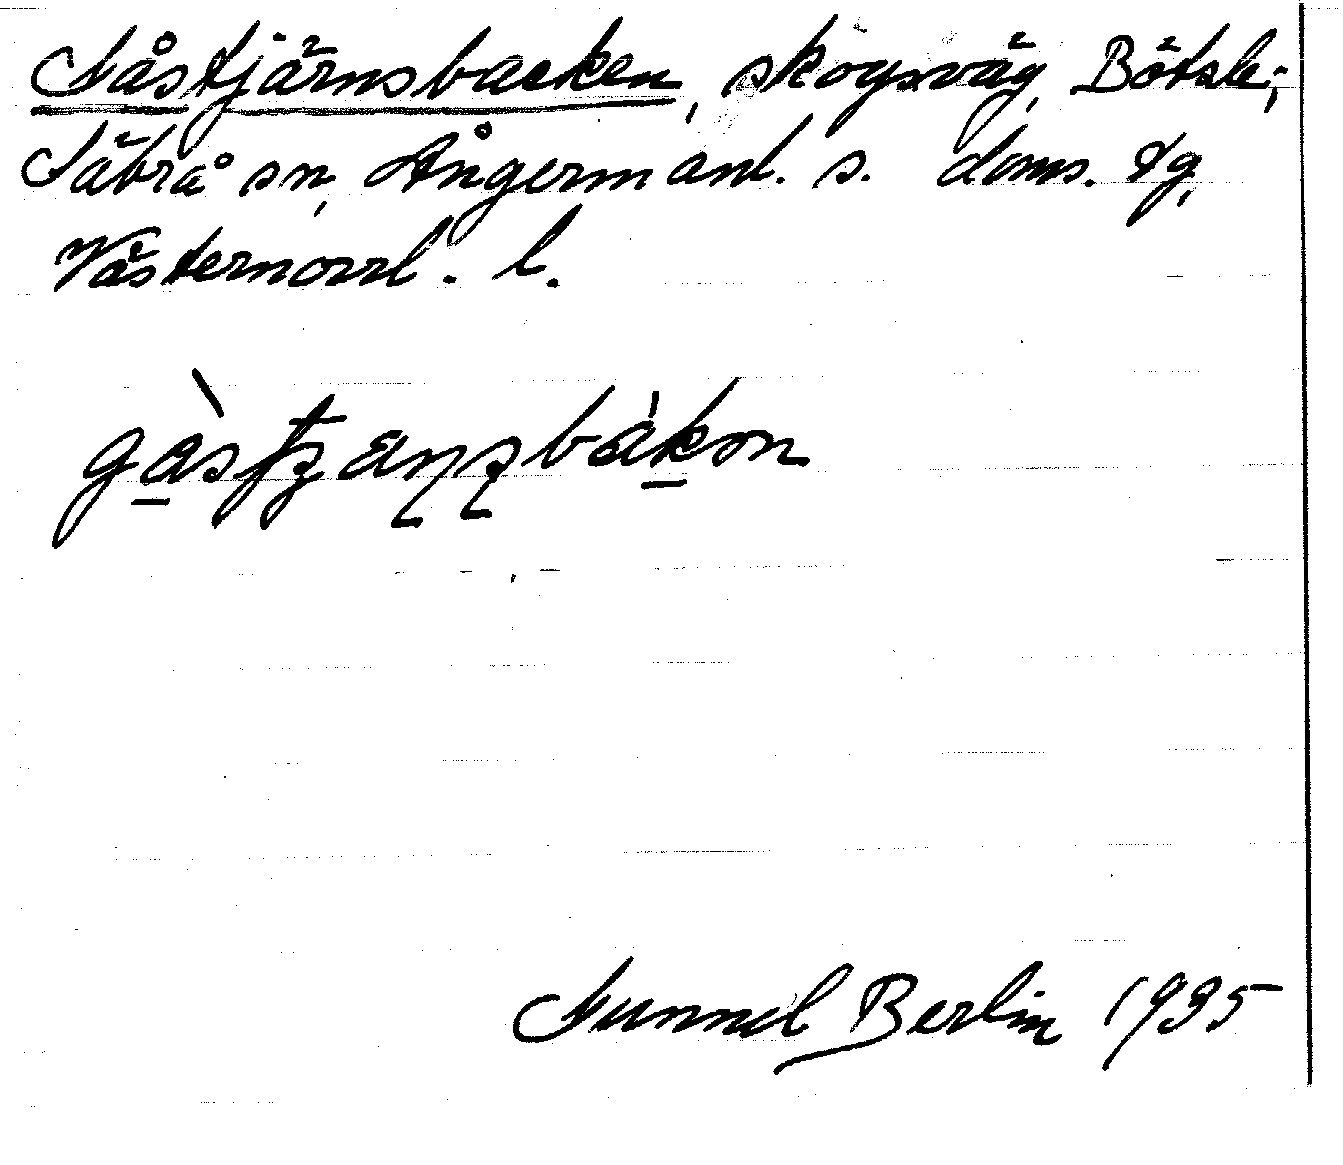 Gåstjärnsbacken, skogsväg, Bölsle;
Säbrå sn, Ångermanl. s. doms. tg,
Västernorrl. l.
Gunnel Berlin 1935